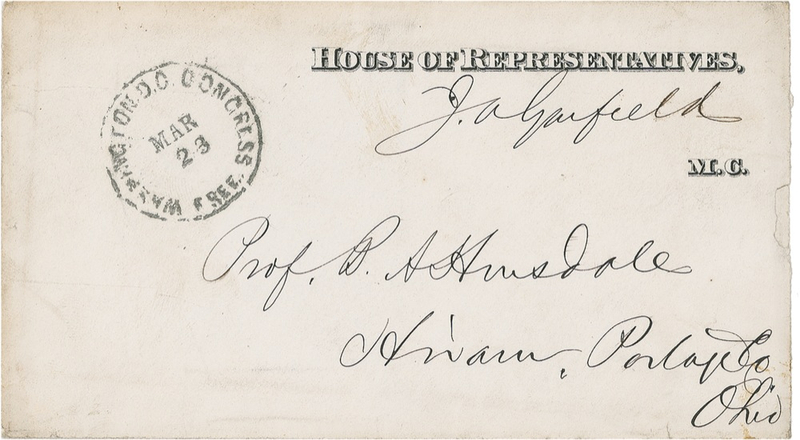 HOUSE OF REPRESENTATIVES,
J. A Garfield
M.C.
WASHINGTON D.C. CONGRESS
MAR
23
FREE
Prof. B. A Hinsdale
Hiram, Portage Co
Ohio